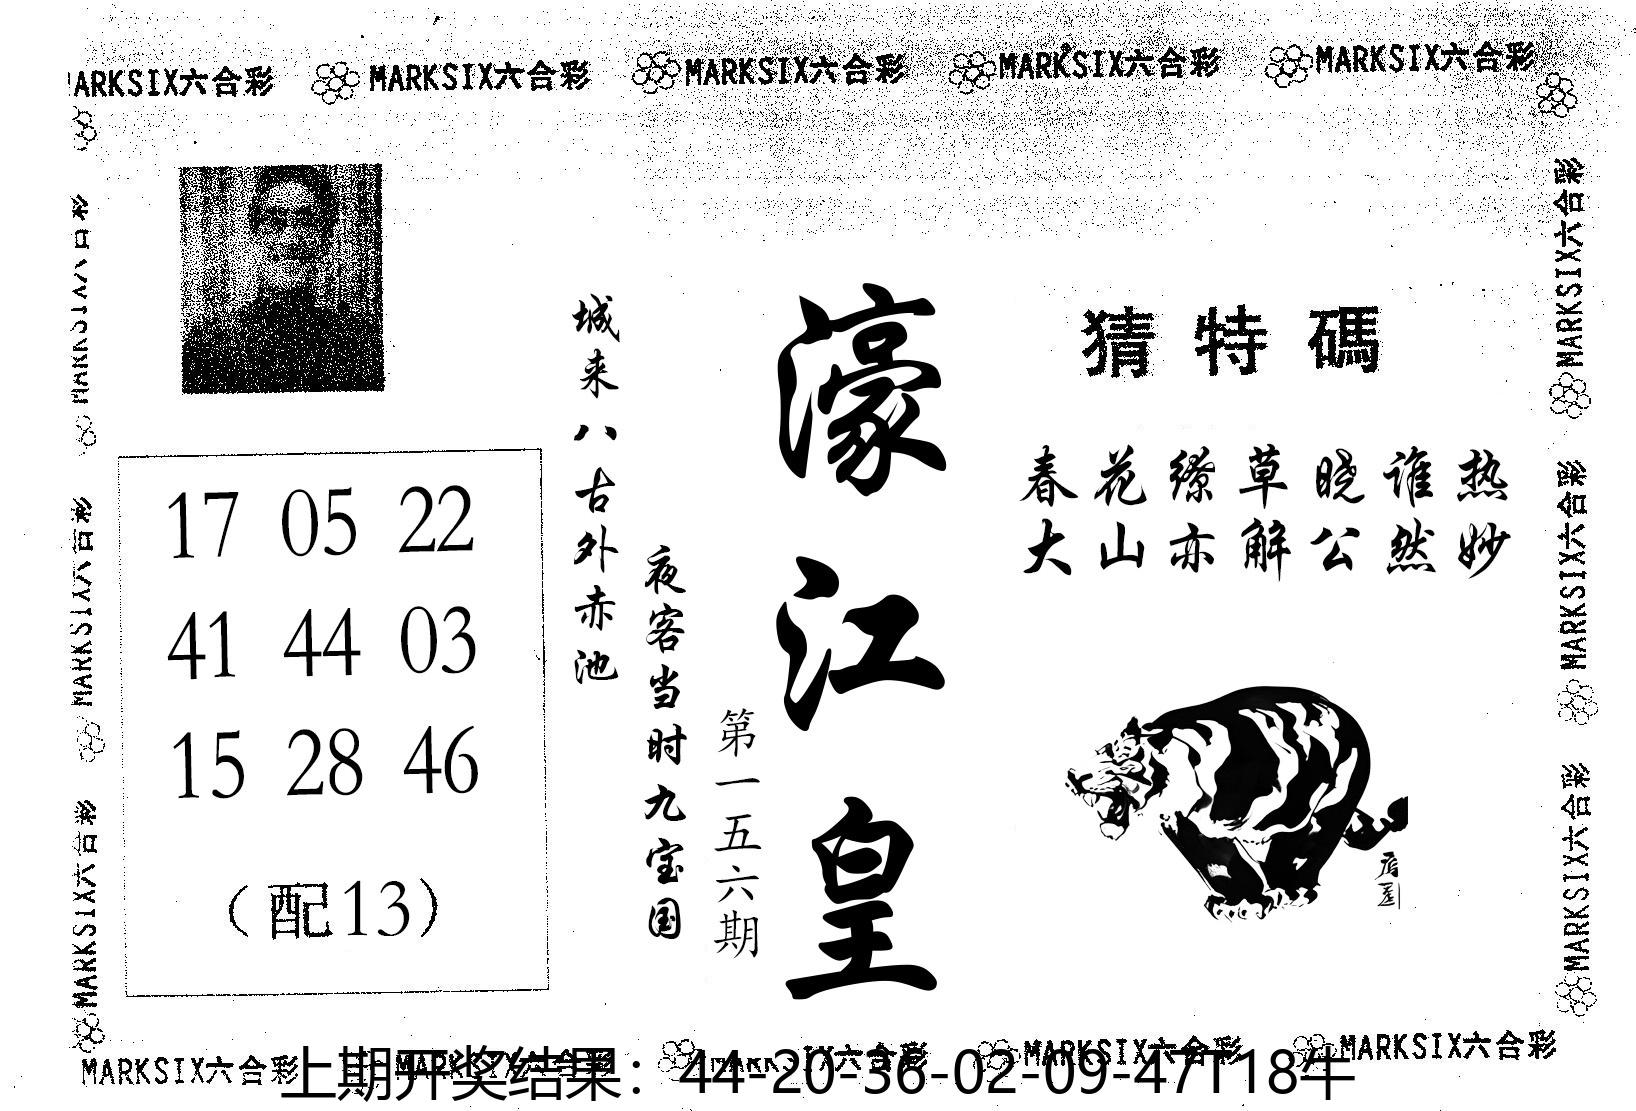 MARKSIX六合彩 MARKSIX六合彩 MARKSIX六合彩 MARKSIX六合彩 MARKSIX六合彩
MARKSIX六合彩
MARKSIX六合彩
MARKSIX六合彩
17 05 22
41 44 03
15 28 46
(配13)
城来八古外赤池
夜客当时九宝国
第一五六期
濠江皇
猜特碼
春花缭草晓谁热
大山亦解公然妙
MARKSIX六合彩
MARKSIX六合彩
MARKSIX六合彩
MARKSIX六合彩 MARKSIX六合彩 MARKSIX六合彩 MARKSIX六合彩 MARKSIX六合彩
上期开奖结果：44-20-36-02-09-47T18牛